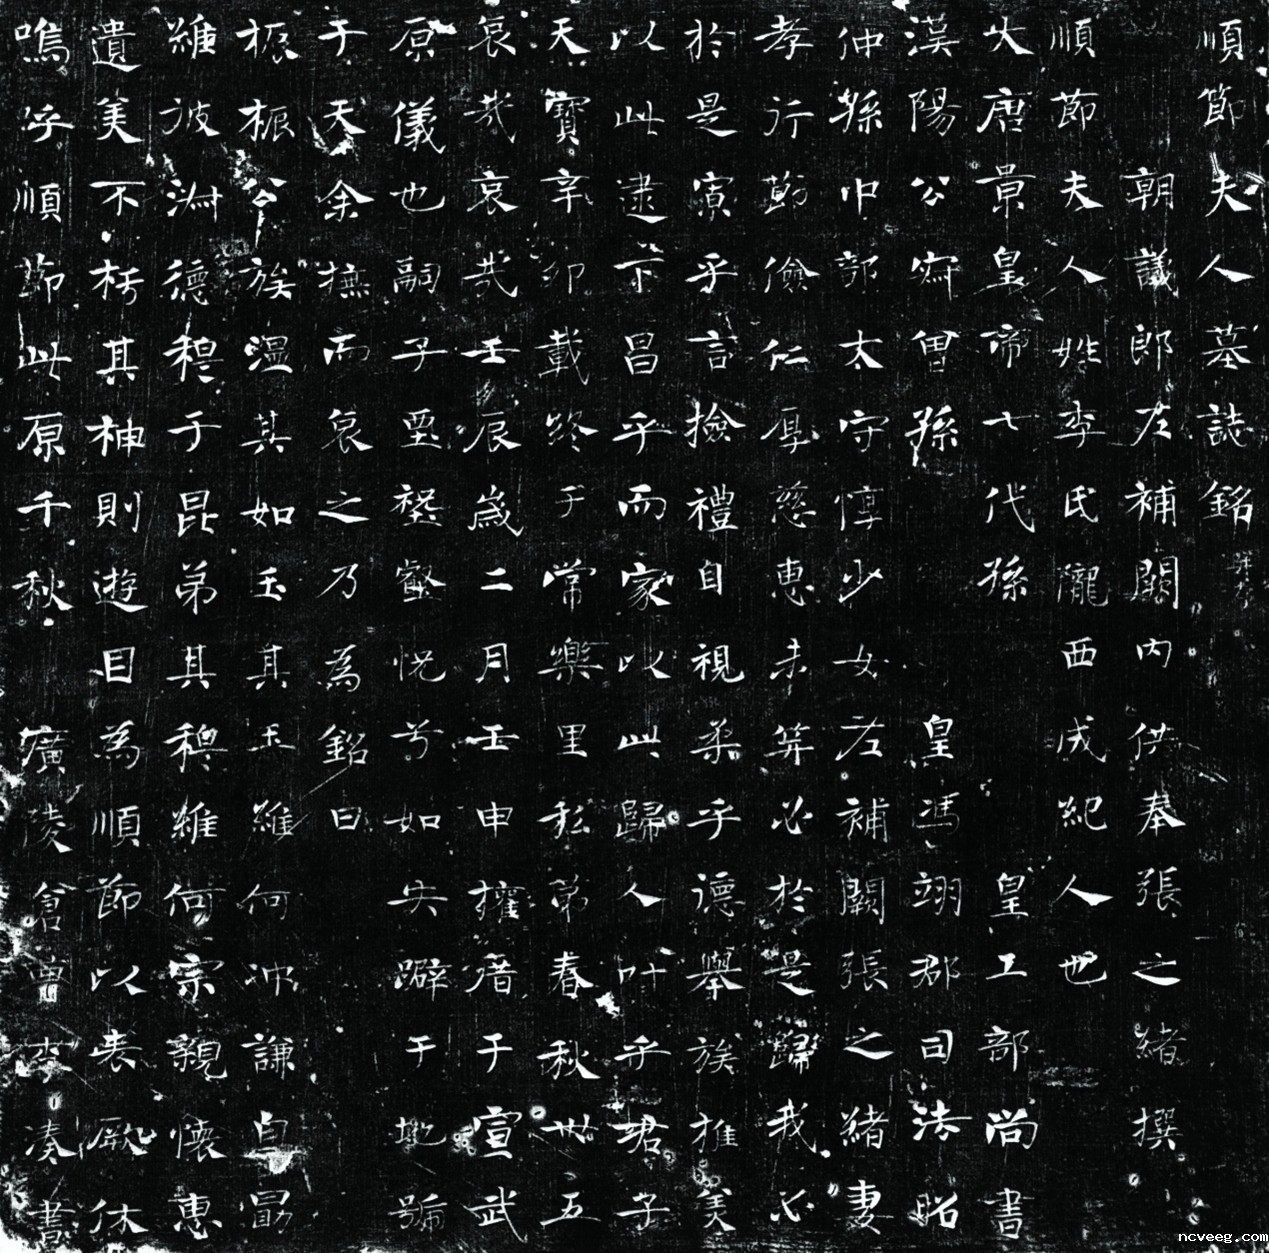 順節夫人墓誌銘并序
朝議郎左補闕內供奉張之緒撰
順節夫人姓李氏隴西成紀人也
大唐景皇帝七代孫 皇工部尚書
漢陽公齊曾孫 皇馮翊郡司法昭
仲孫中部太守惇少女左補闕張之緒妻
孝行節儉仁厚慈惠未笄必於是歸我必
於是寅乎言撿禮自視柔乎德舉族推美
以此逮下昌乎而家以此歸人叶乎君子
天寶辛卯載終于常樂里私第春秋卅五
哀哉哀哉壬辰歲二月壬申權厝于宣武
原儀也嗣子壐礐壑怳兮如失躃于地號
于天余撫而哀之乃為銘曰
振振公族溫其如玉其玉維何沖謙自勖
維彼淑德穆于昆弟其穆維何宗親懷惠
遺美不朽其神則遊目為順節以表厥休
嗚乎順節此原千秋 廣陵倉曹李湊書
ncveeg.com